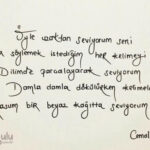 Öyle uzaktan seviyorum seni
söylemek istediğim her kelimeyi
Dilimde parçalayarak seviyorum
Damla damla dökülürken kelimele
bir beyaz kağıtta seviyorum
Cemal